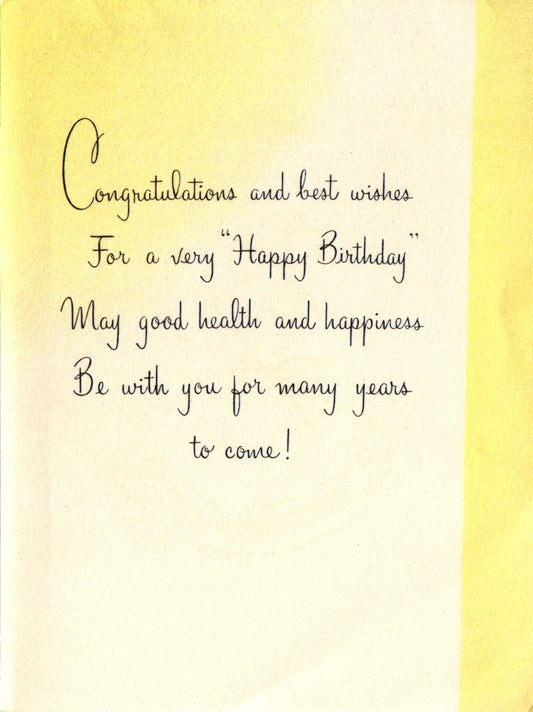 Congratulations and best wishes
For a very "Happy Birthday"
May good health and happiness
Be with you for many years
to come!